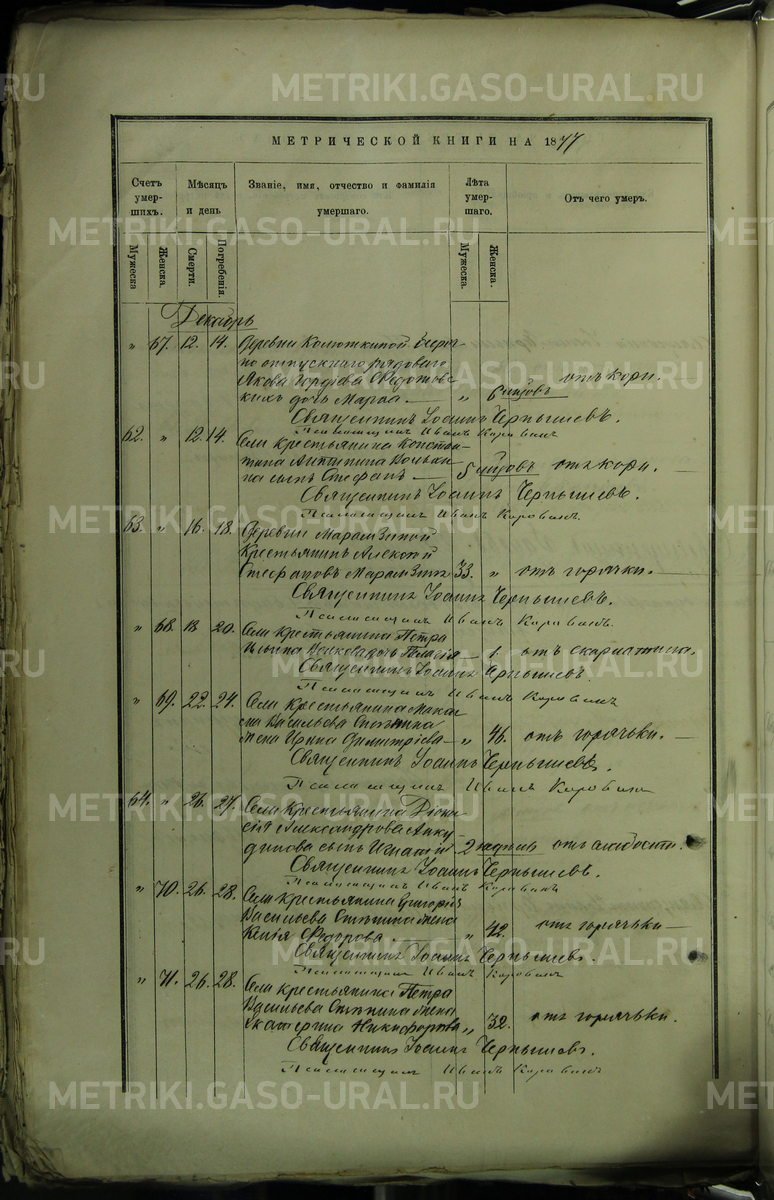 METRIKI.GASO-URAL.RU
МЕТРИЧЕСКОЙ КНИГИ НА 1877
Счетъ умершихъ.
Мѣсяцъ и день
Званіе, имя, отчество и фамилія умершаго.
Лѣта умершаго.
Отъ чего умеръ.
Мужеска
Женска.
Смерти.
Погребенія.
Мужеска.
Женска.
Декабрь
" 67. 12. 14. Деревни Колюткиной
но отпускнаго рядоваго
Якова Федотовскихъ дочь Марѳа. " 6 мѣсяцовъ отъ кори.
Священникъ Іоаннъ Чернышевъ.
Псаломщикъ Иванъ Коровинъ
62. " 12. 14. Села крестьянина Констан-
тина Антипина
на сынъ Стефанъ 5 мѣсяцовъ отъ кори.
Священникъ Іоаннъ Чернышевъ.
Псаломщикъ Иванъ Коровинъ.
63. " 16. 18. Деревни Марамзиной
Крестьянинъ Алексѣй
Стефановъ Марамзинъ 33. " отъ горячки.
Священникъ Іоаннъ Чернышевъ.
Псаломщикъ Иванъ Коровинъ.
" 68. 18. 20. Села крестьянина Петра
Ильина дочь Пелагія 1. отъ скарлатины.
Священникъ Іоаннъ Чернышевъ.
Псаломщикъ Иванъ Коровинъ
" 69. 22. 24. Села Крестьянина Мака-
ра Васильева Спѣшина
жена Ирина Димитріева " 46. отъ горячьки.
Священникъ Іоаннъ Чернышевъ.
Псаломщикъ Иванъ Коровинъ
64. " 26. 27. Села Крестьянина Діони-
сія Александрова Анку-
динова сынъ Игнатій 2 недѣли отъ слабости.
Священникъ Іоаннъ Чернышевъ.
Псаломщикъ Иванъ Коровинъ
" 70. 26. 28. Села крестьянина Григорія
Васильева Спѣшина жена
Ксенія Ѳедорова. " 42. отъ горячьки
Священникъ Іоаннъ Чернышевъ.
Псаломщикъ Иванъ Коровинъ
" 71. 26. 28. Села крестьянина Петра
Васильева Спѣшина жена
Екатерина Никифорова " 32. отъ горячьки.
Священникъ Іоаннъ Чернышевъ.
Псаломщикъ Иванъ Коровинъ